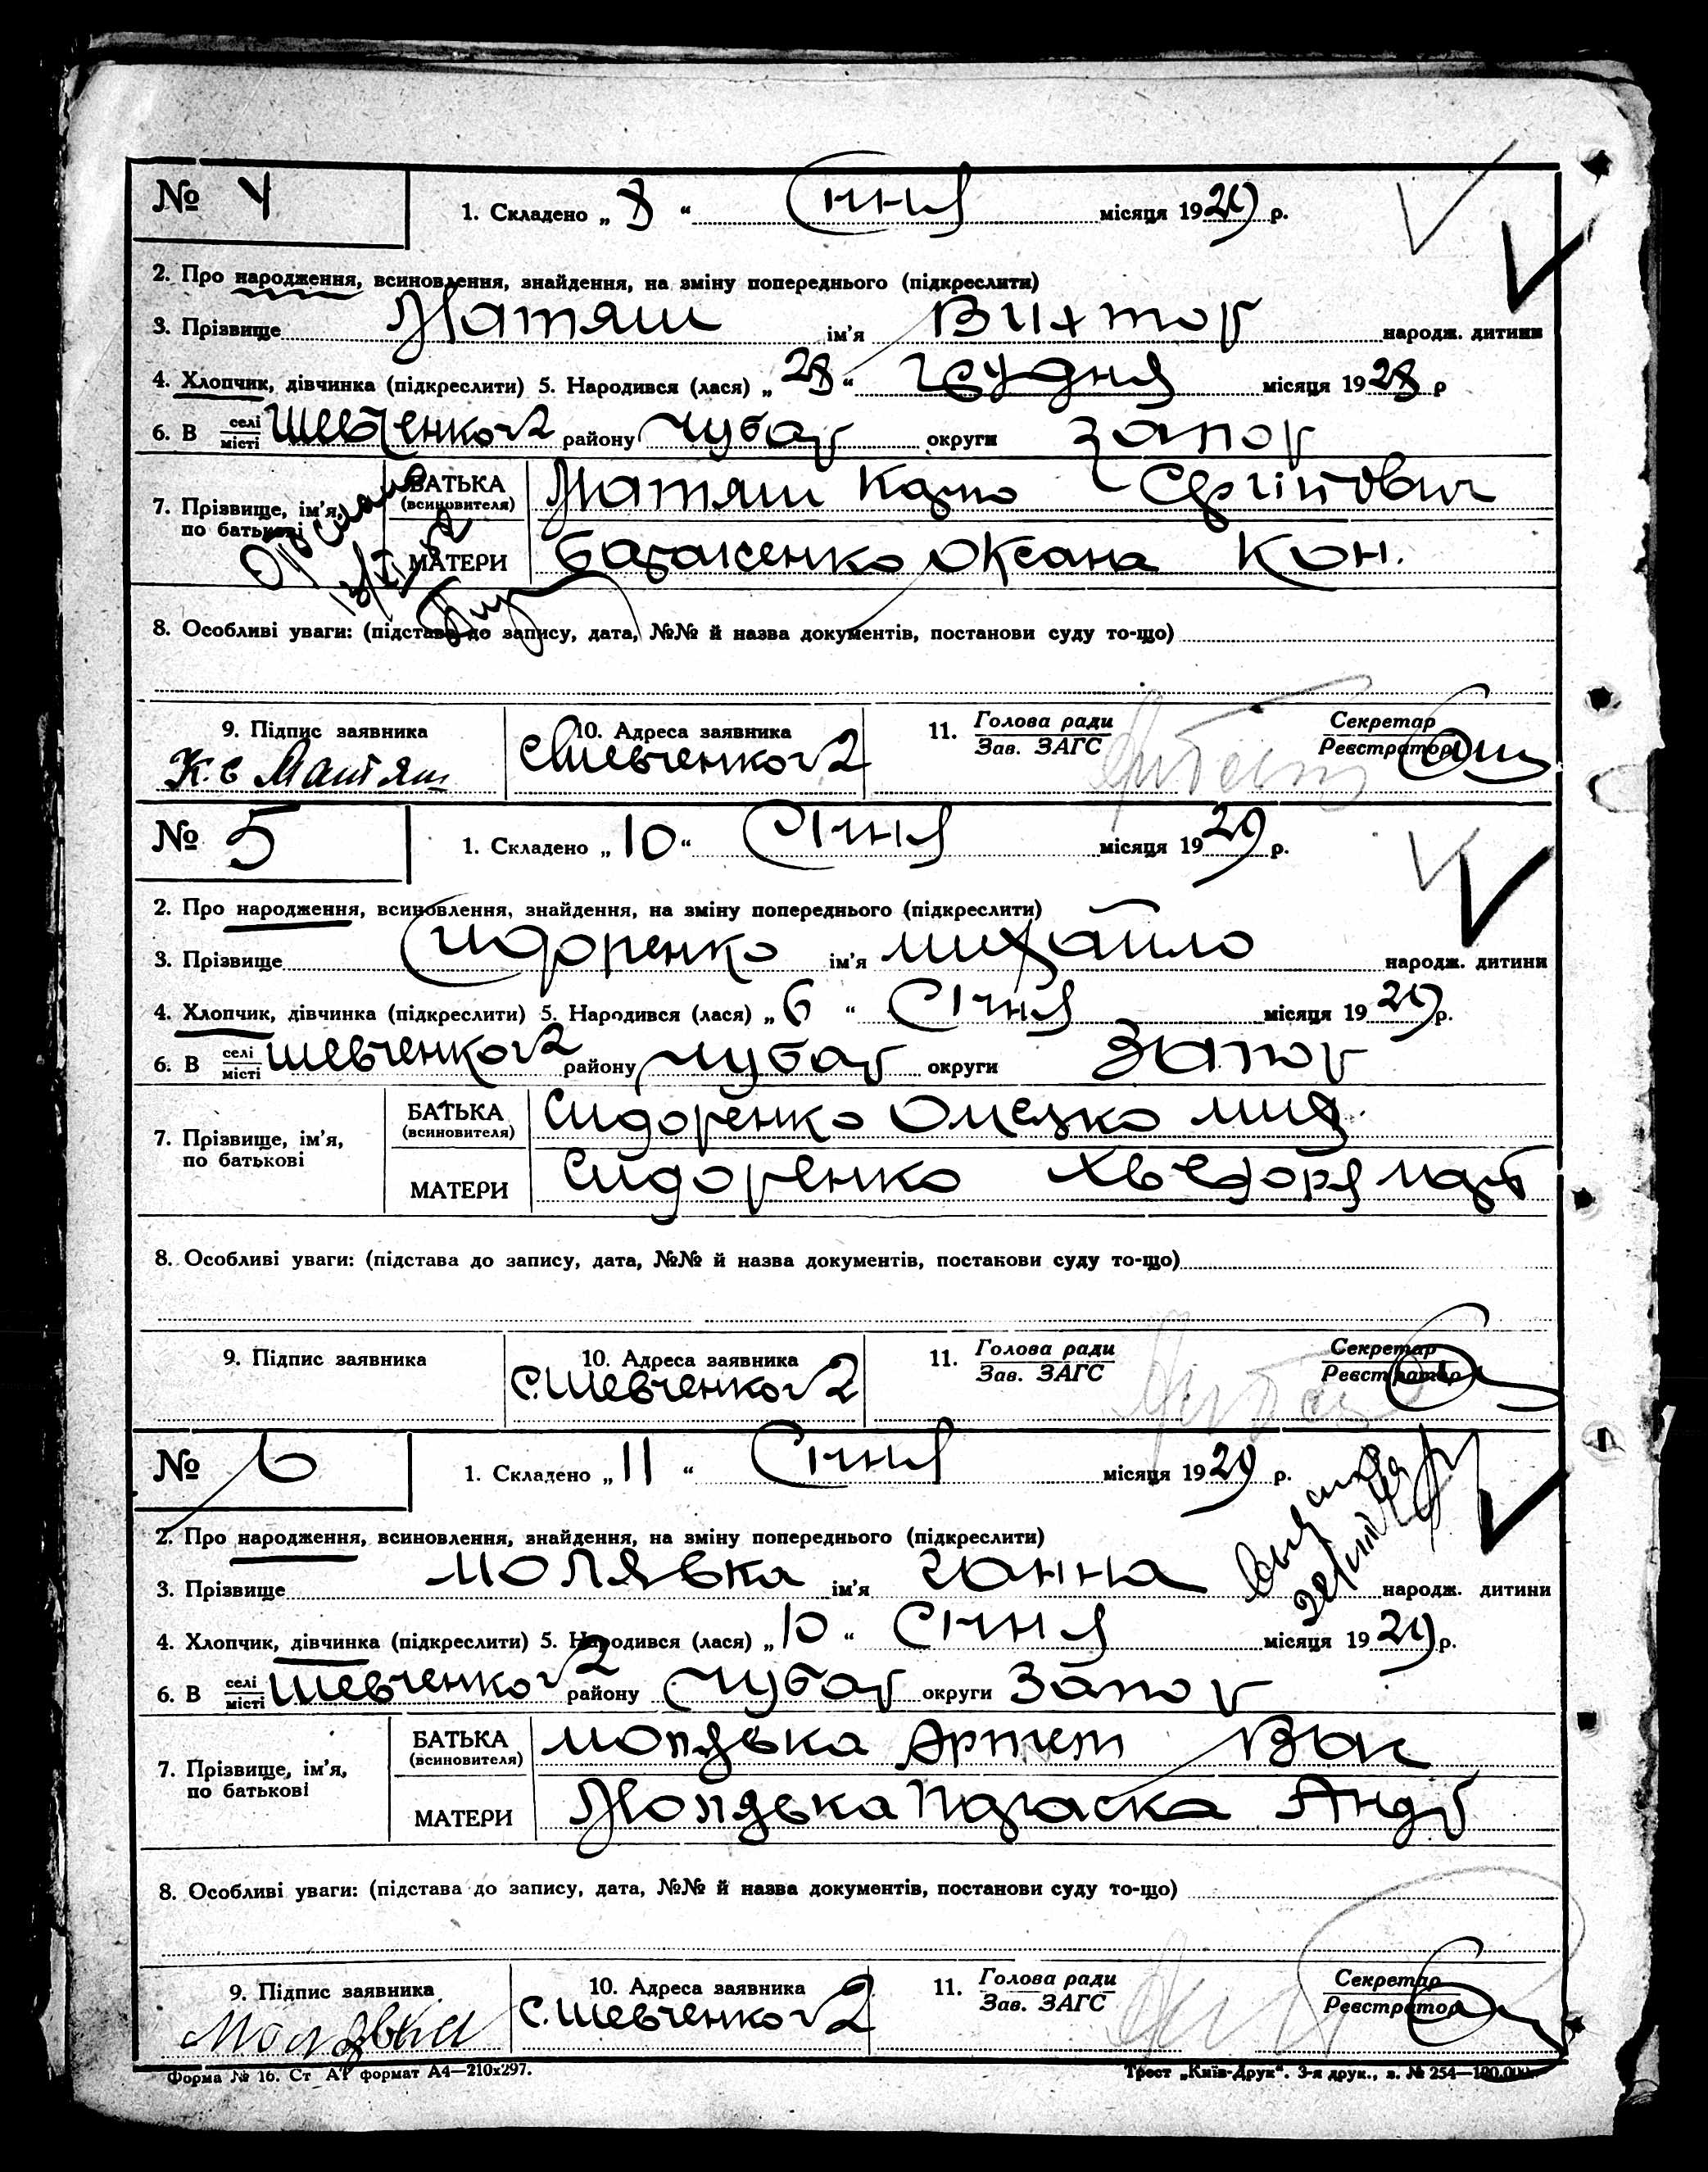 № 4 1. Складено „ 8 “ Січня місяця 1929 р.
2. Про народження, всиновлення, знайдення, на зміну попереднього (підкреслити)
3. Прізвище Матяш ім'я Вихтор народж. дитини
4. Хлопчик, дівчинка (підкреслити) 5. Народився (лася) „ 28 “ грудня місяця 1928 р
6. В селі/місті Шевченков 2 району Чубар округи Запор
7. Прізвище, ім'я, по батькові
БАТЬКА (всиновителя) Матяш Карпо Сергійович
МАТЕРИ Оксана Кон.
8. Особливі уваги: (підстава до запису, дата, №№ й назва документів, постанови суду то-що)
9. Підпис заявника 10. Адреса заявника 11. Голова ради Секретар
Зав. ЗАГС Реєстратор
К. С Матяш с Шевченков 2
№ 5 1. Складено „ 10 “ Січня місяця 1929 р.
2. Про народження, всиновлення, знайдення, на зміну попереднього (підкреслити)
3. Прізвище Сидоренко ім'я Михайло народж. дитини
4. Хлопчик, дівчинка (підкреслити) 5. Народився (лася) „ 6 “ Січня місяця 1929 р.
6. В селі/місті Шевченков 2 району Чубар округи Запор
7. Прізвище, ім'я, по батькові
БАТЬКА (всиновителя) Сидоренко Омелько Мих.
МАТЕРИ Сидоренко Хведоря
8. Особливі уваги: (підстава до запису, дата, №№ й назва документів, постакови суду то-що)
9. Підпис заявника 10. Адреса заявника 11. Голова ради Секретар
Зав. ЗАГС Реєстратор
с. Шевченков 2
№ 6 1. Складено „ 11 “ Січня місяця 1929 р.
2. Про народження, всиновлення, знайдення, на зміну попереднього (підкреслити)
3. Прізвище Молявка ім'я Ганна народж. дитини
4. Хлопчик, дівчинка (підкреслити) 5. Народився (лася) „ 10 “ Січня місяця 1929 р.
6. В селі/місті Шевченков 2 району Чубар округи Запор
7. Прізвище, ім'я, по батькові
БАТЬКА (всиновителя) Молявка Артем
МАТЕРИ Молявка Параска Андр
8. Особливі уваги: (підстава до запису, дата, №№ й назва документів, постанови суду то-що)
9. Підпис заявника 10. Адреса заявника 11. Голова ради Секретар
Зав. ЗАГС Реєстратор
с. Шевченков 2
Форма № 16. Ст АТ формат А4—210х297. Трест „Київ-Друк“. 3-я друк., з. № 254—100.000.